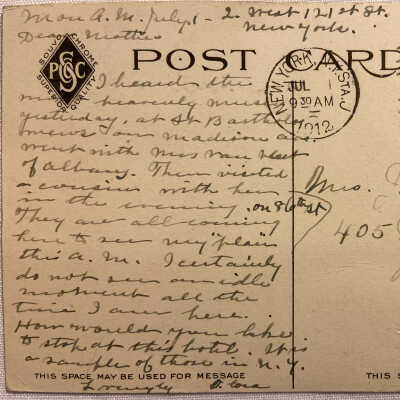 Mon A.M. July 1 - 2. West 121st St.
New York.
Dear Mother
SOUVO CHROME
PSC CO
SUPERIOR QUALITY
POST CARD
NEW YORK, N.Y. STA. J
JUL 1
9 30 AM
1912
I heard the
most heavenly music
yesterday, at St Barthol-
mews on Madison ave.
Went with Mrs Van
of Albany. Then visited
a cousin with her
in the evening. on 86th St
They are all coming
here to see my "plain
this A.M. I certainly
do not see an idle
moment all the
time I am here.
How would you like
to stop at this hotel. It is
a sample of those in N.Y.
Mrs.
405
THIS SPACE MAY BE USED FOR MESSAGE
THIS S
Lovingly